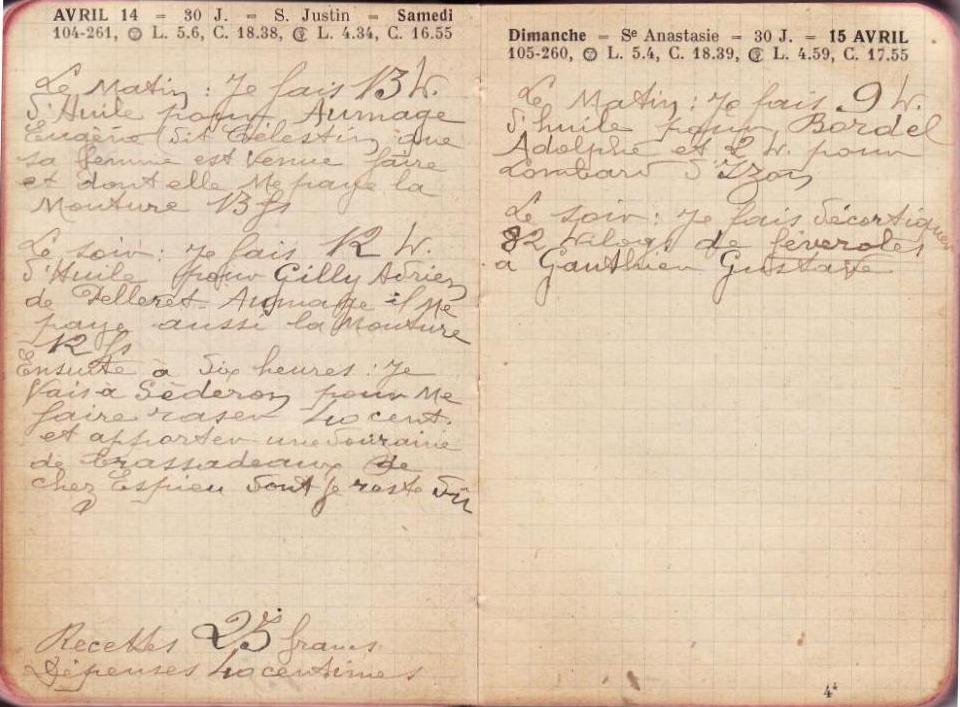 AVRIL 14 = 30 J. = S. Justin = Samedi
104-261, L. 5.6, C. 18.38, L. 4.34, C. 16.55
Le Matin : Je fais 13 K.
d'Huile pour Aumage
Eugène (dit Célestin, que
sa femme est venue faire
et dont elle Me paye la
Mouture 13 fs
Le soir : je fais 12 K.
d'Huile pour Gilly Adrien
de Pelleret-Aumage il Me
paye aussi la Mouture
12 fs
Ensuite à six heures : Je
Vais à Séderon pour Me
faire raser 40 cent.
et apporter une douzaine
de Brassadeaux de
chez Espieu dont je reste dû
Recettes 25 francs
Dépenses 40 centimes
Dimanche = Se Anastasie = 30 J. = 15 AVRIL
105-260, L. 5.4, C. 18.39, L. 4.59, C. 17.55
Le Matin : Je fais 9 K.
d'huile pour Bordel
Adolphe et 2 K. pour
Lombard d'Izon
Le soir : Je fais décortiquer
82 Kilogs de féveroles
a Gauthier Gustave
4*